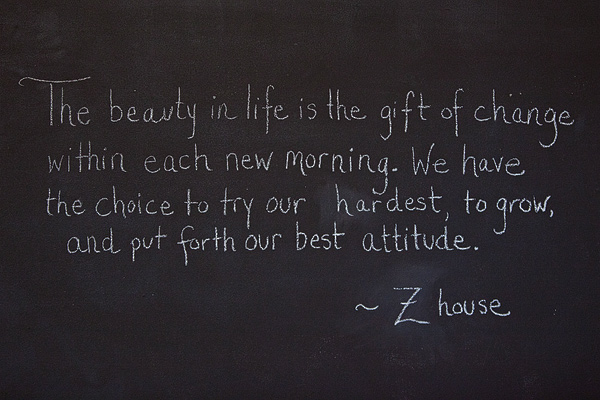 The beauty in life is the gift of change
within each new morning. We have
the choice to try our hardest, to grow,
and put forth our best attitude.
~ Z house